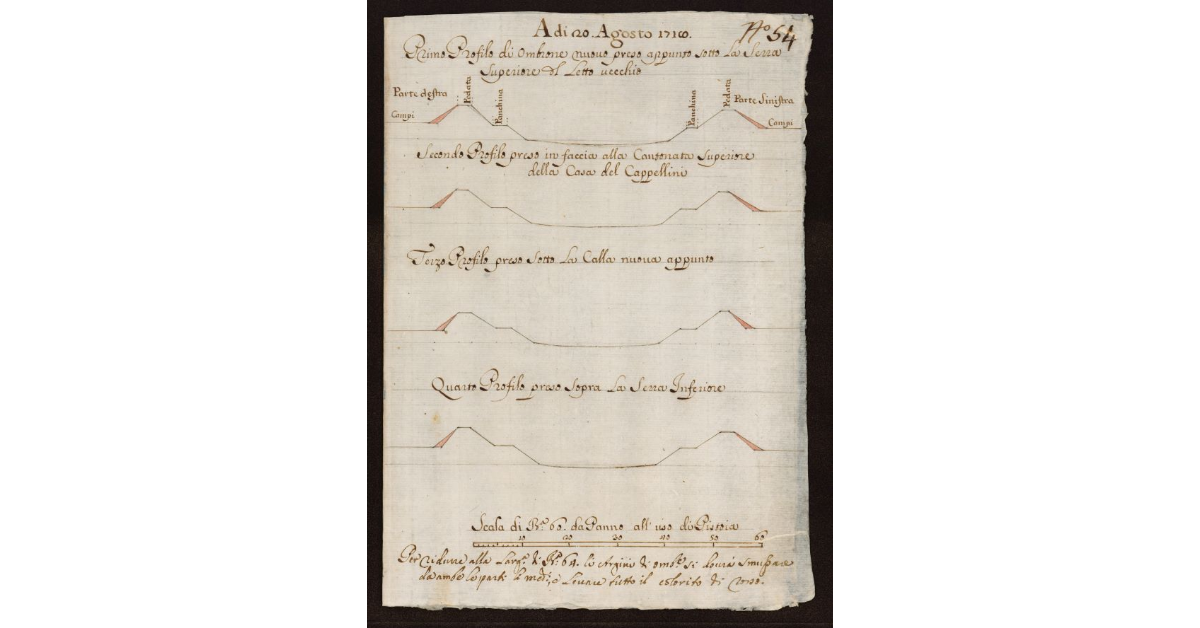 A di 20. Agosto 1716.
Nº 54
Primo Profilo di Ombrone nuovo preso appunto sotto La Serra
Superiore del Letto vecchio
Parte destra
Pedata
Panchina
Panchina
Pedata
Parte Sinistra
Campi
Campi
Secondo Profilo preso in faccia alla Cantonata Superiore
della Casa del Cappellini
Terzo Profilo preso sotto La Calla nuova appunto
Quarto Profilo preso sopra La Serra Inferiore
Scala di Bª 60. da Panno all' uso di Pistoia
10 20 30 40 50 60
Per ridurre alla Largª di Bª 64. le Argine di si dovrà
da ambe le parti Levare tutto il colorito di rosso.